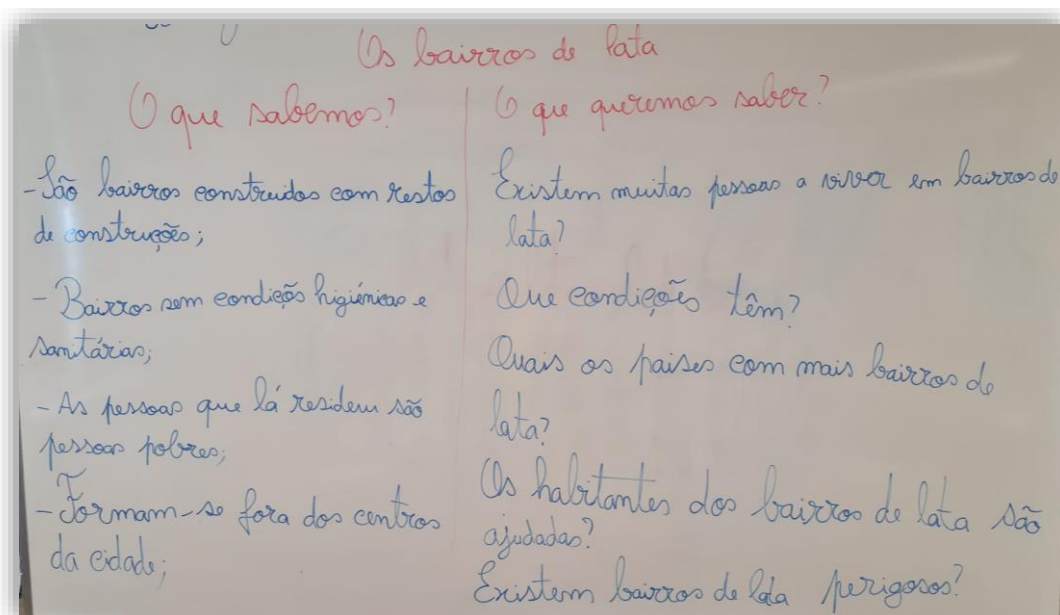 Os bairros de lata
O que sabemos?
- São bairros construidos com restos
de construções;
- Bairros sem condiçõs higiénicas e
sanitárias;
- As pessoas que lá residem são
pessoas pobres;
- Formam-se fora dos centros
da cidade;
O que queremos saber?
Existem muitas pessoas a viver em bairros de
lata?
Que condições têm?
Quais os paises com mais bairros de
lata?
Os habitantes dos bairros de lata são
ajudadas?
Existem bairros de lata perigosos?